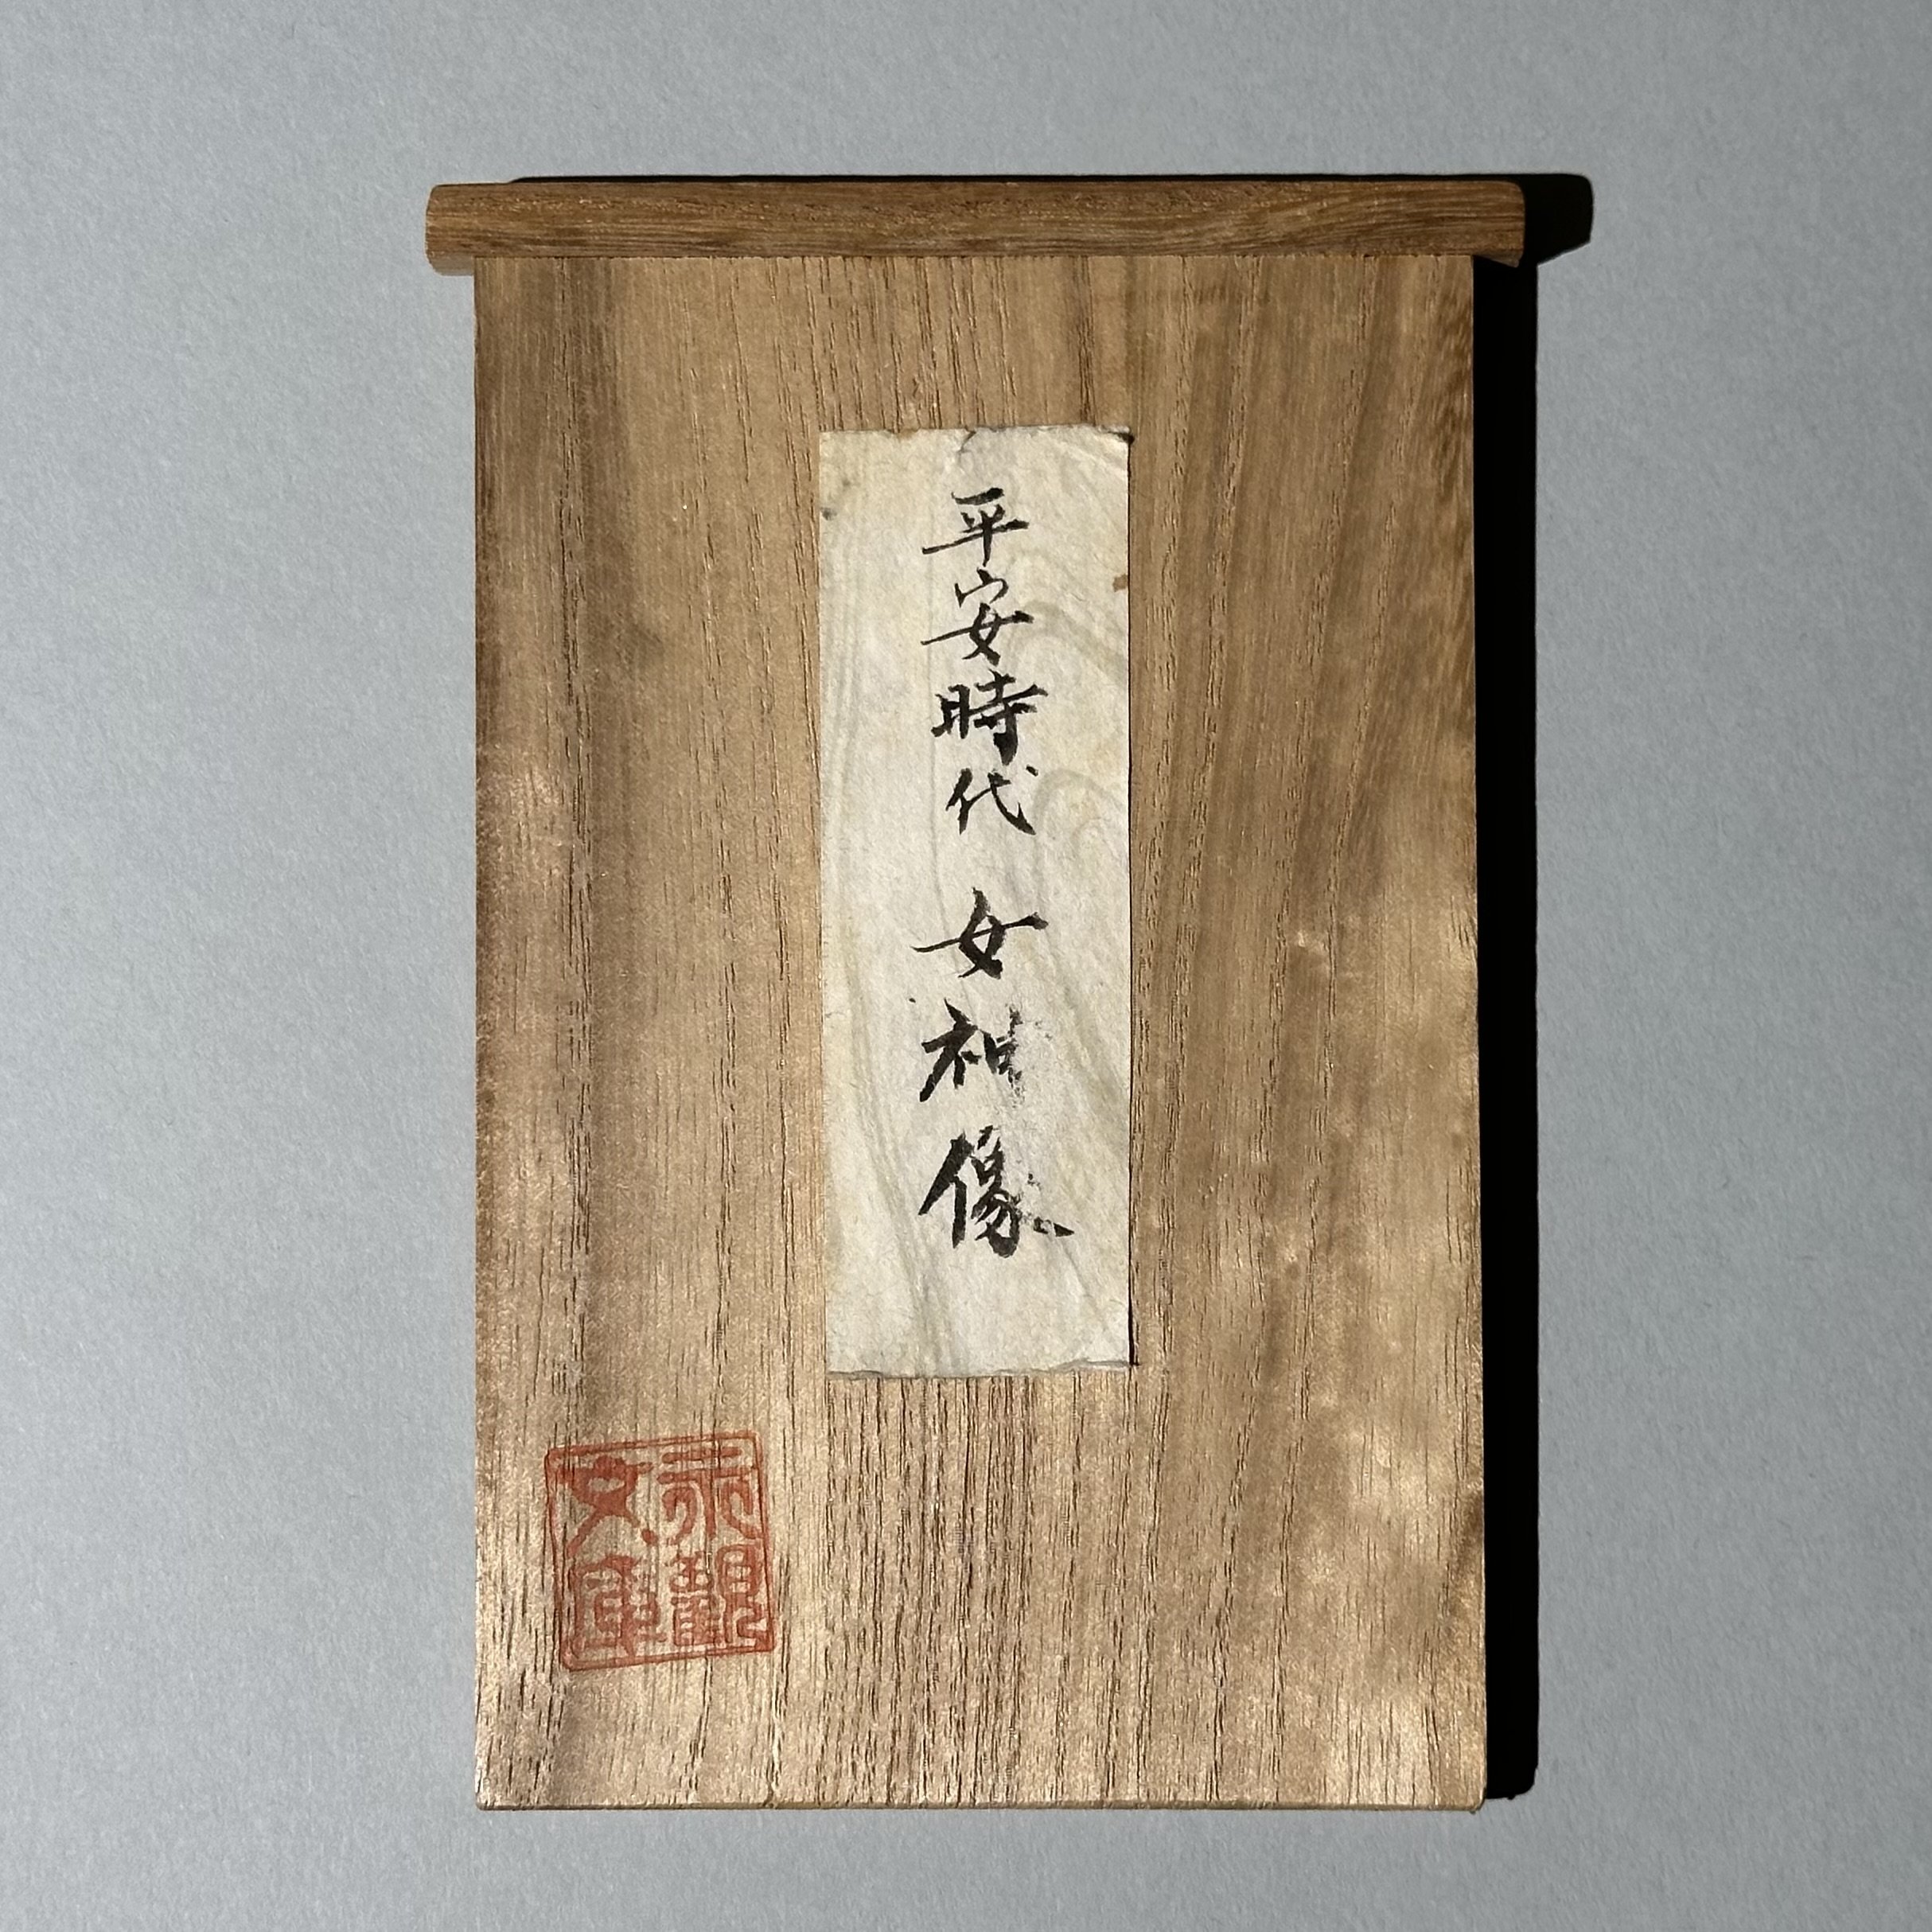 平安時代 女神像
永観
文庫